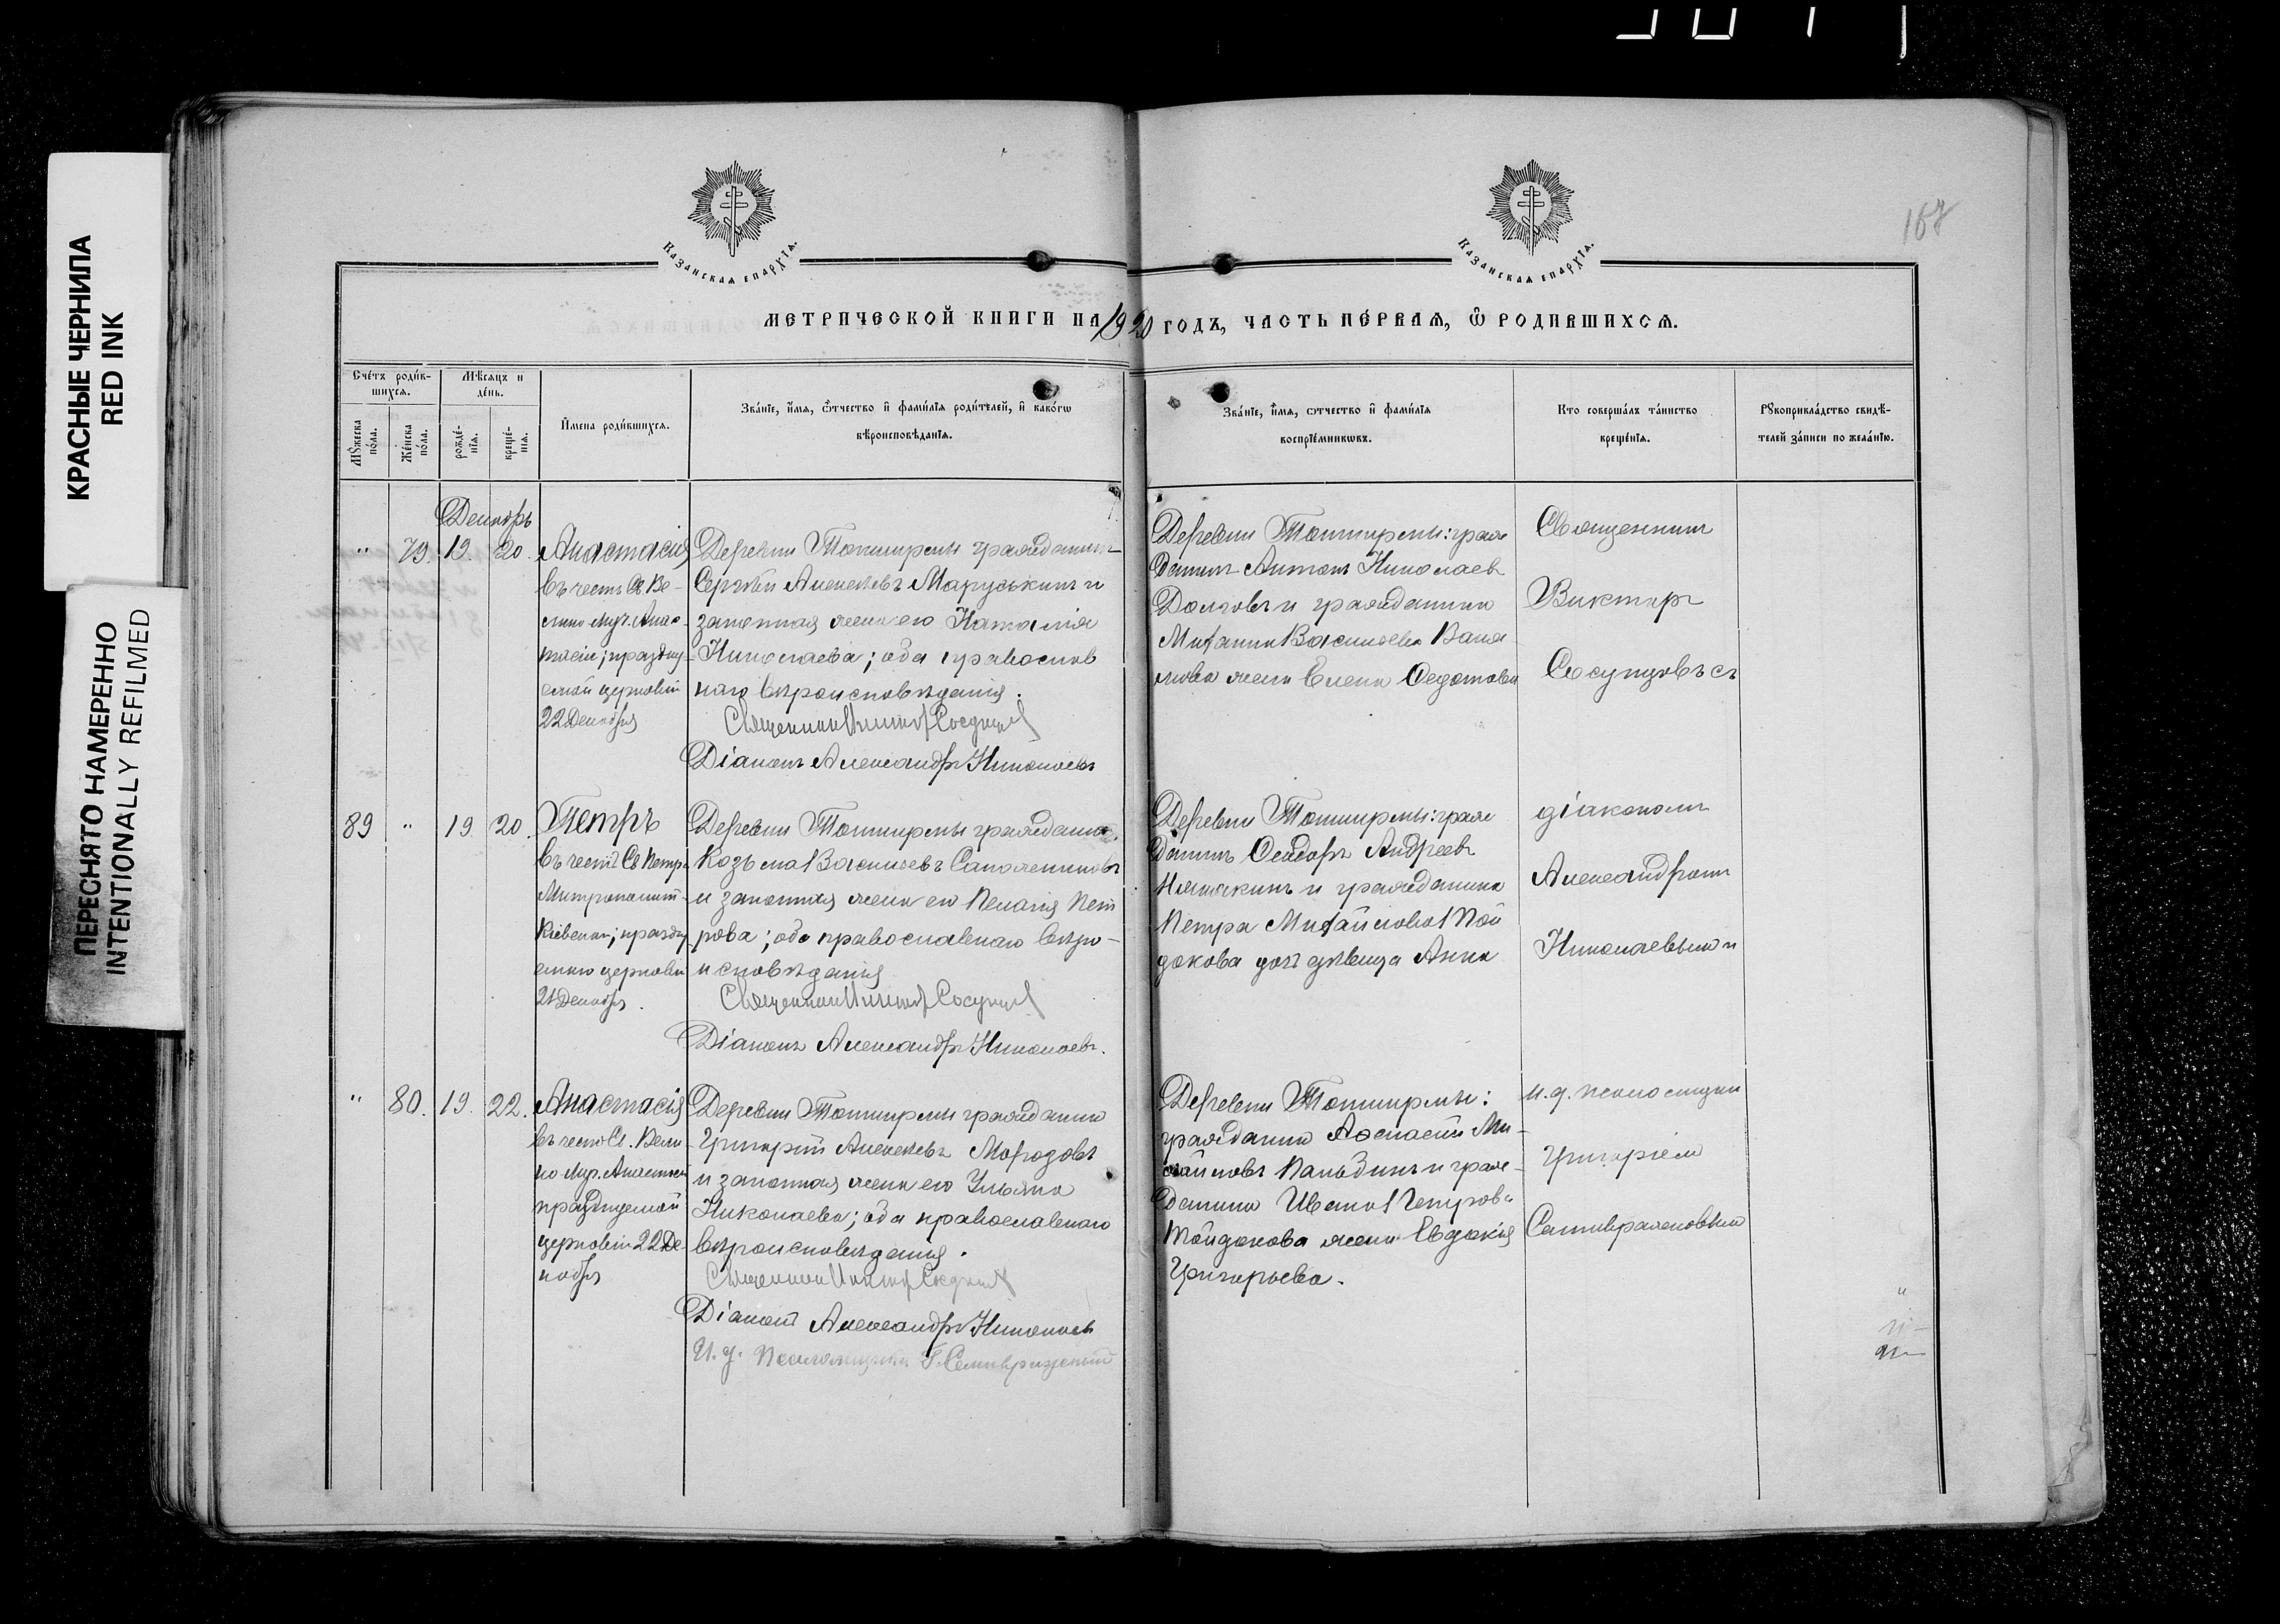 167
КРАСНЫЕ ЧЕРНИЛА
RED INK
ПЕРЕСНЯТО НАМЕРЕННО
INTENTIONALLY REFILMED
Казанская епархїѧ.
Казанская епархїѧ.
МЕТРИЧЕСКОЙ КНИГИ НА 1920 ГОДЪ, ЧАСТЬ ПЕ́РВАѦ, Ѡ҆ РОДИВШИХСѦ.
Сче́тъ роди́в-
шихсѧ.
Мꙋ́жеска по́ла.
Же́нска по́ла.
Мѣ́сѧцъ и де́нь.
рожде́-нїѧ.
креще́-нїѧ.
И҆мена роди́вшихсѧ.
Зва́нїе, и҆́мѧ, ѻ҆́тчество и҆ фами́лїѧ роди́телей, и҆ како́гѡ
вѣроисповѣ́данїѧ.
Зва́нїе, и҆́мѧ, ѻ҆́тчество и҆ фами́лїѧ
воспрїе́мникѡвъ.
Кто соверша́лъ та́инство
креще́нїѧ.
Рꙋкоприкла́дство свидѣ́-
телей за́писи по жела́нїю.
Декабрь
" 79. 19. 20.
Анастасія
въ честь Св. Ве-
лико Муч. Анас-
тасіи; празднуе-
емой церковію
22 Декабря
Деревни гражданинъ
Сергѣй Алексѣевъ Марускинъ и
законная жена его Наталія
Николаева; оба православ
наго вѣроисповѣданія.
Священникъ Викторъ Сосунцовъ
Діаконъ Александръ Николаевъ
Деревни граж
данинъ Антонъ Николаев
Долговъ и гражданина
Михаила Васильева
жена Елена Федотова
Священникъ
Викторъ
Сосунцовъ съ
89 " 19. 20.
Петръ
въ честь Св. Петра
Митрополит
Кіевскаго; праздну
емаго церковію
21 Декабря.
Деревни гражданинъ
Козьма Васильевъ Сапожниковъ
и законная жена его Пелагія Пет
рова; оба православнаго вѣро-
исповѣданія
Священникъ Викторъ Сосунцовъ
Діаконъ Александръ Николаевъ.
Деревни граж
данинъ Андреевъ
и гражданина
Петра Михайлова Той
дакова дочь дѣвица Анна
діакономъ
Александромъ
Николаевымъ и
" 80. 19. 22.
Анастасія
въ честь Св. Вели
ко Муч. Анастасіи
празднуемой
церковію 22 Де
кабря
Деревни гражданинъ
Григорій Алексѣевъ Морозовъ
и законная жена его Ульяна
Николаева; оба православнаго
вѣроисповѣданія.
Священникъ Викторъ Сосунцовъ
Діаконъ Александръ Николаевъ
И. д. псаломщика Г. Семивраженскій
Деревни
гражданинъ Афанасій Ми-
хайловъ и граж-
данина Ивана Петрова
Тойдакова жена Евдокія
Григорьева.
и. д. псаломщика
Григоріемъ
Семивраженскимъ